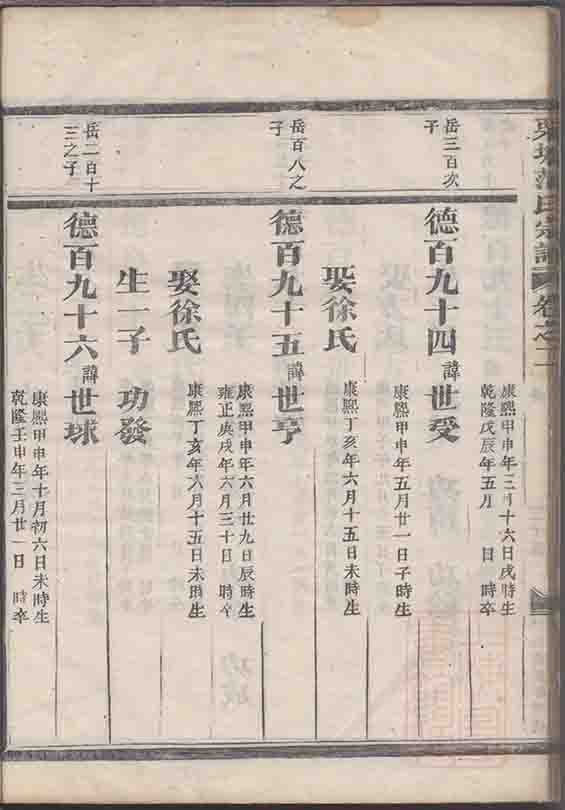 氏宗譜 卷之二
岳三百次
子
德百九十四諱世受
康熙甲申年三月十六日戌時生
乾隆戊辰年五月 日 時卒
康熙甲申年五月廿一日子時生
娶徐氏
康熙丁亥年六月十五日未時生
岳百八之
子
德百九十五諱世亨
康熙甲申年六月廿九日辰時生
雍正庚戌年六月三十日 時卒
娶徐氏
康熙丁亥年六月十五日未時生
生一子 功發
岳二百十
三之子
德百九十六諱世球
康熙甲申年十月初六日未時生
乾隆壬申年三月廿一日 時卒